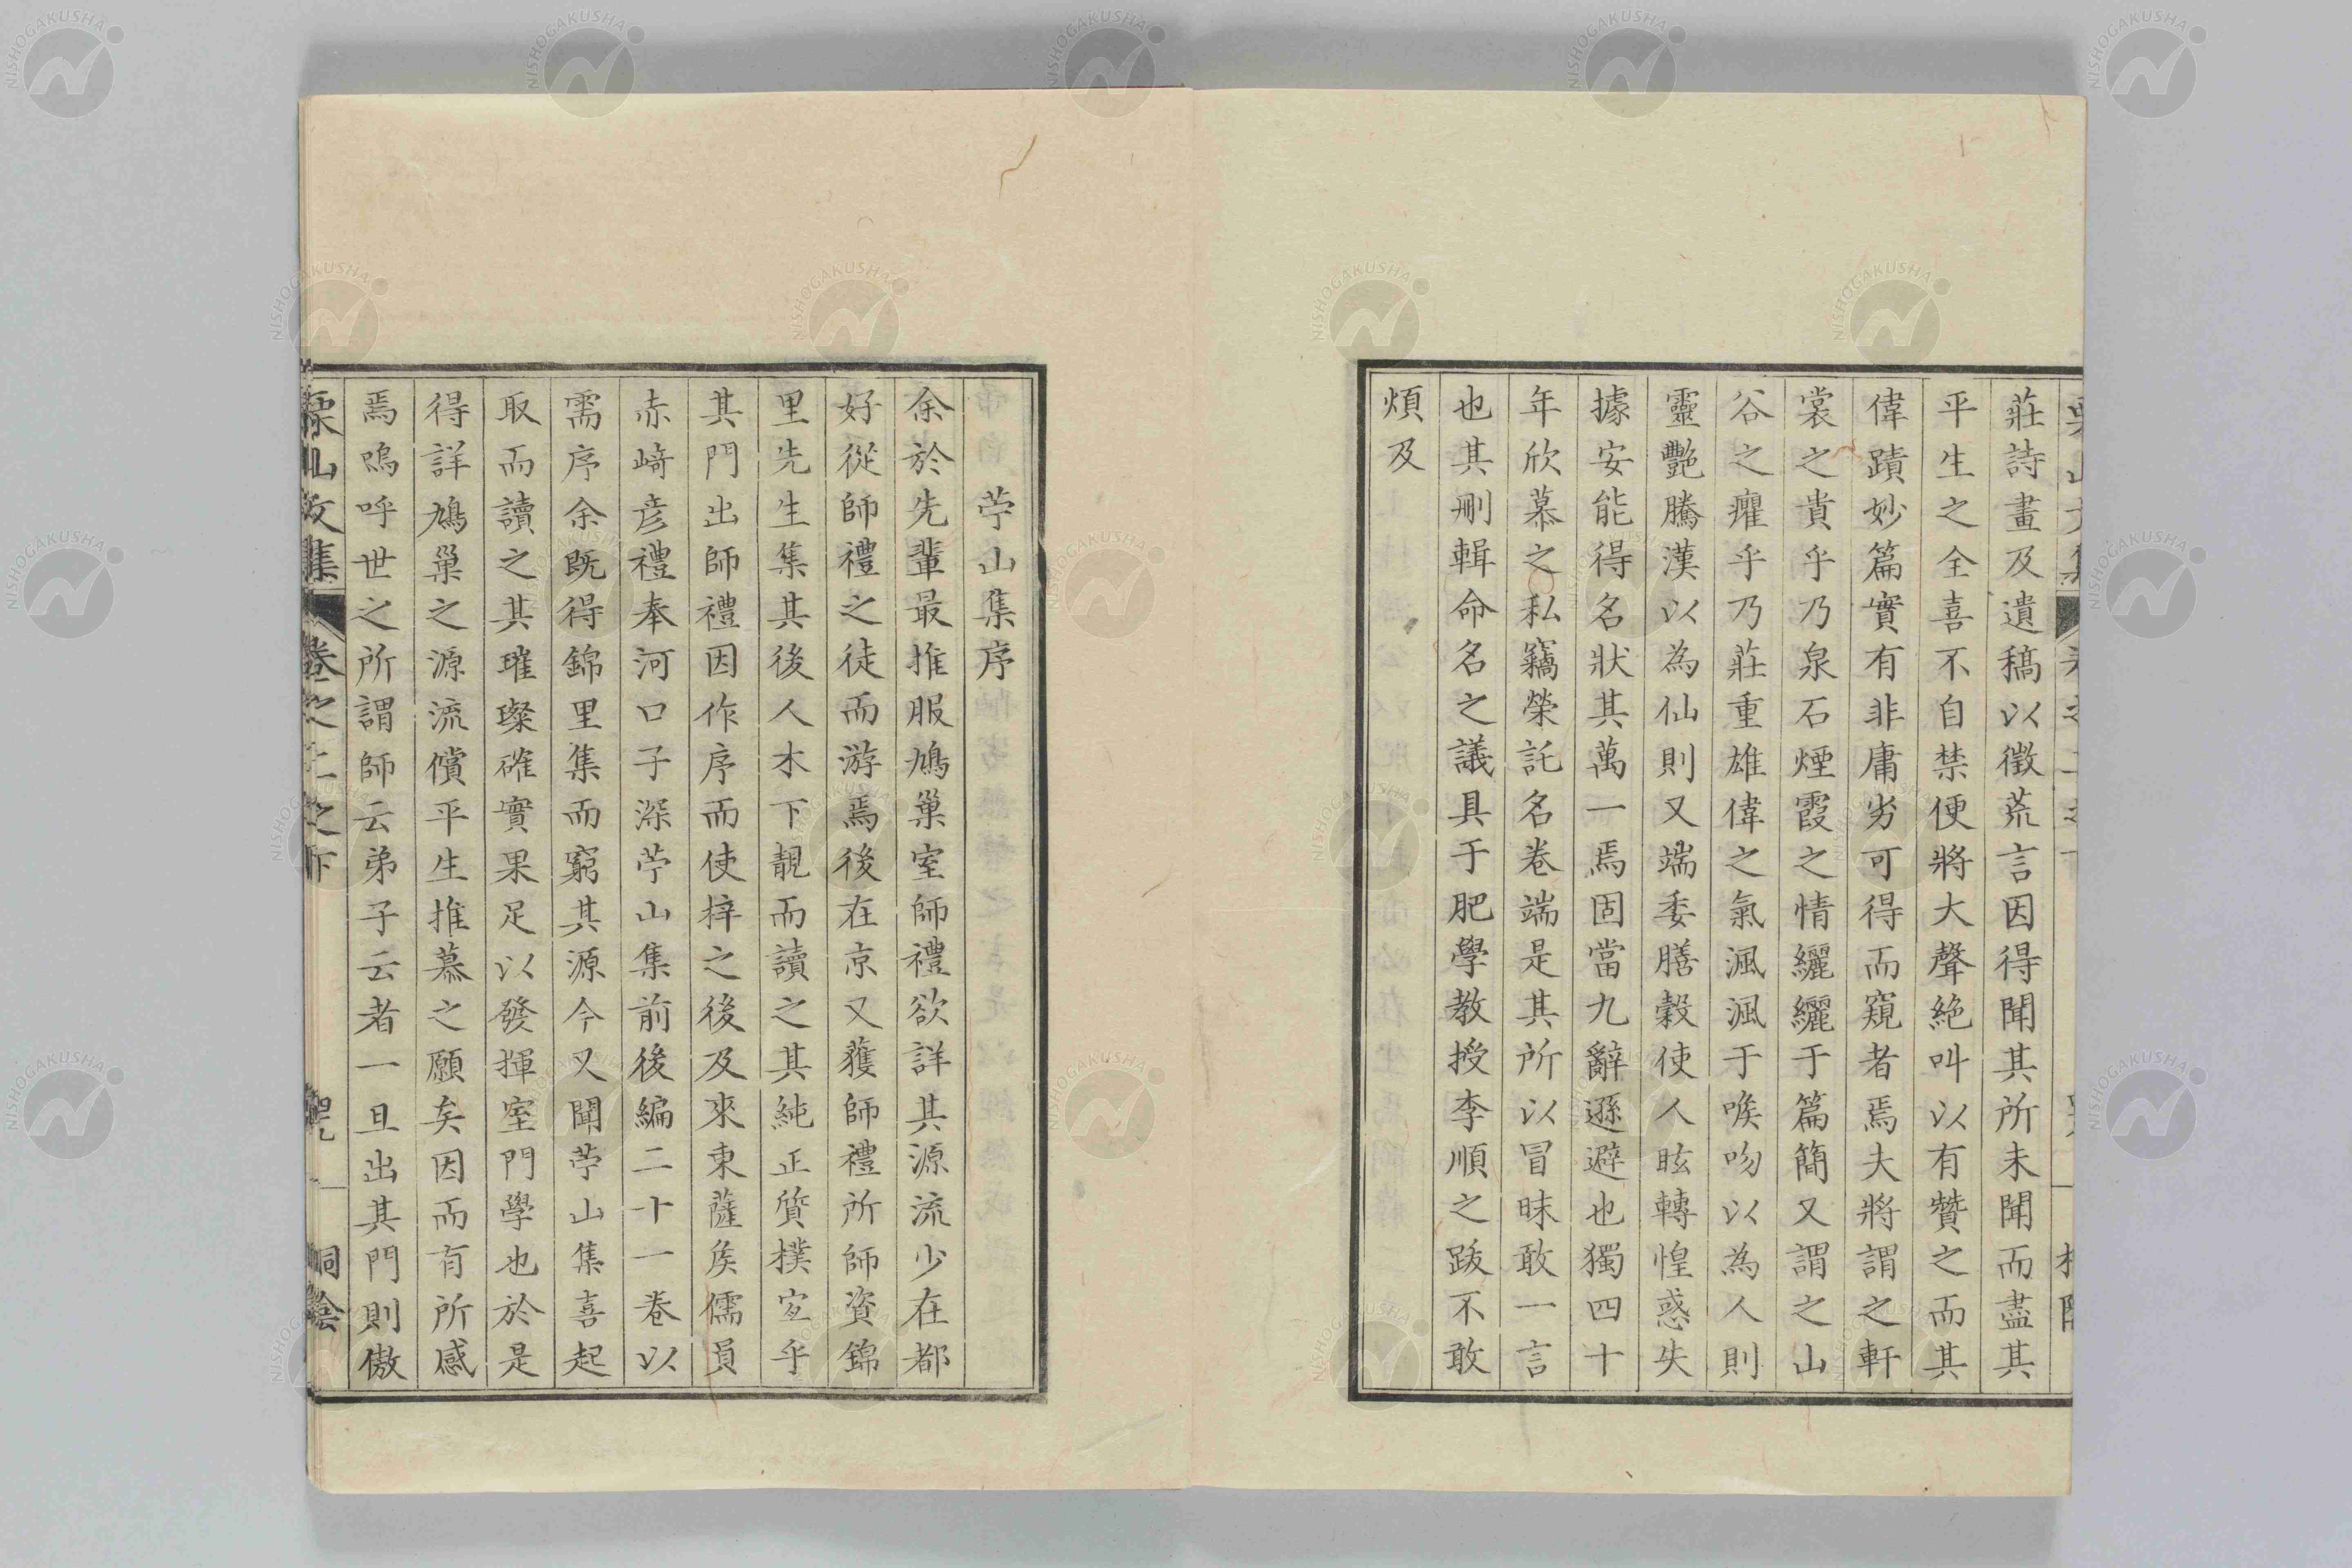 莊詩畫及遺稿以徵荒言因得聞其所未聞而盡其
平生之全喜不自禁便將大聲絶叫以有贊之而其
偉蹟妙篇實有非庸劣可得而窺者焉夫將謂之軒
裳之貴乎乃泉石煙霞之情纚纚于篇簡又謂之山
谷之癯乎乃莊重雄偉之氣渢渢于喉吻以為人則
靈艷騰漢以為仙則又端委膳穀使人眩轉惶惑失
據安能得名狀其萬一焉固當九辭遜避也獨四十
年欣慕之私竊榮託名卷端是其所以冒昧敢一言
也其刪輯命名之議具于肥學教授李順之跋不敢
煩及
苧山集序
余於先輩最推服鳩巢室師禮欲詳其源流少在都
好從師禮之徒而游焉後在京又獲師禮所師資錦
里先生集其後人木下靚而讀之其純正質撲宜乎
其門出師禮因作序而使梓之後及來東薩矦儒員
赤﨑彦禮奉河口子深苧山集前後編二十一卷以
需序余既得錦里集而窮其源今又聞苧山集喜起
取而讀之其璀璨確實果足以發揮室門學也於是
得詳鳩巢之源流償平生推慕之願矣因而有所感
焉嗚呼世之所謂師云弟子云者一旦出其門則傲
栗山文集 卷之二之下
NISHOGAKUSHA